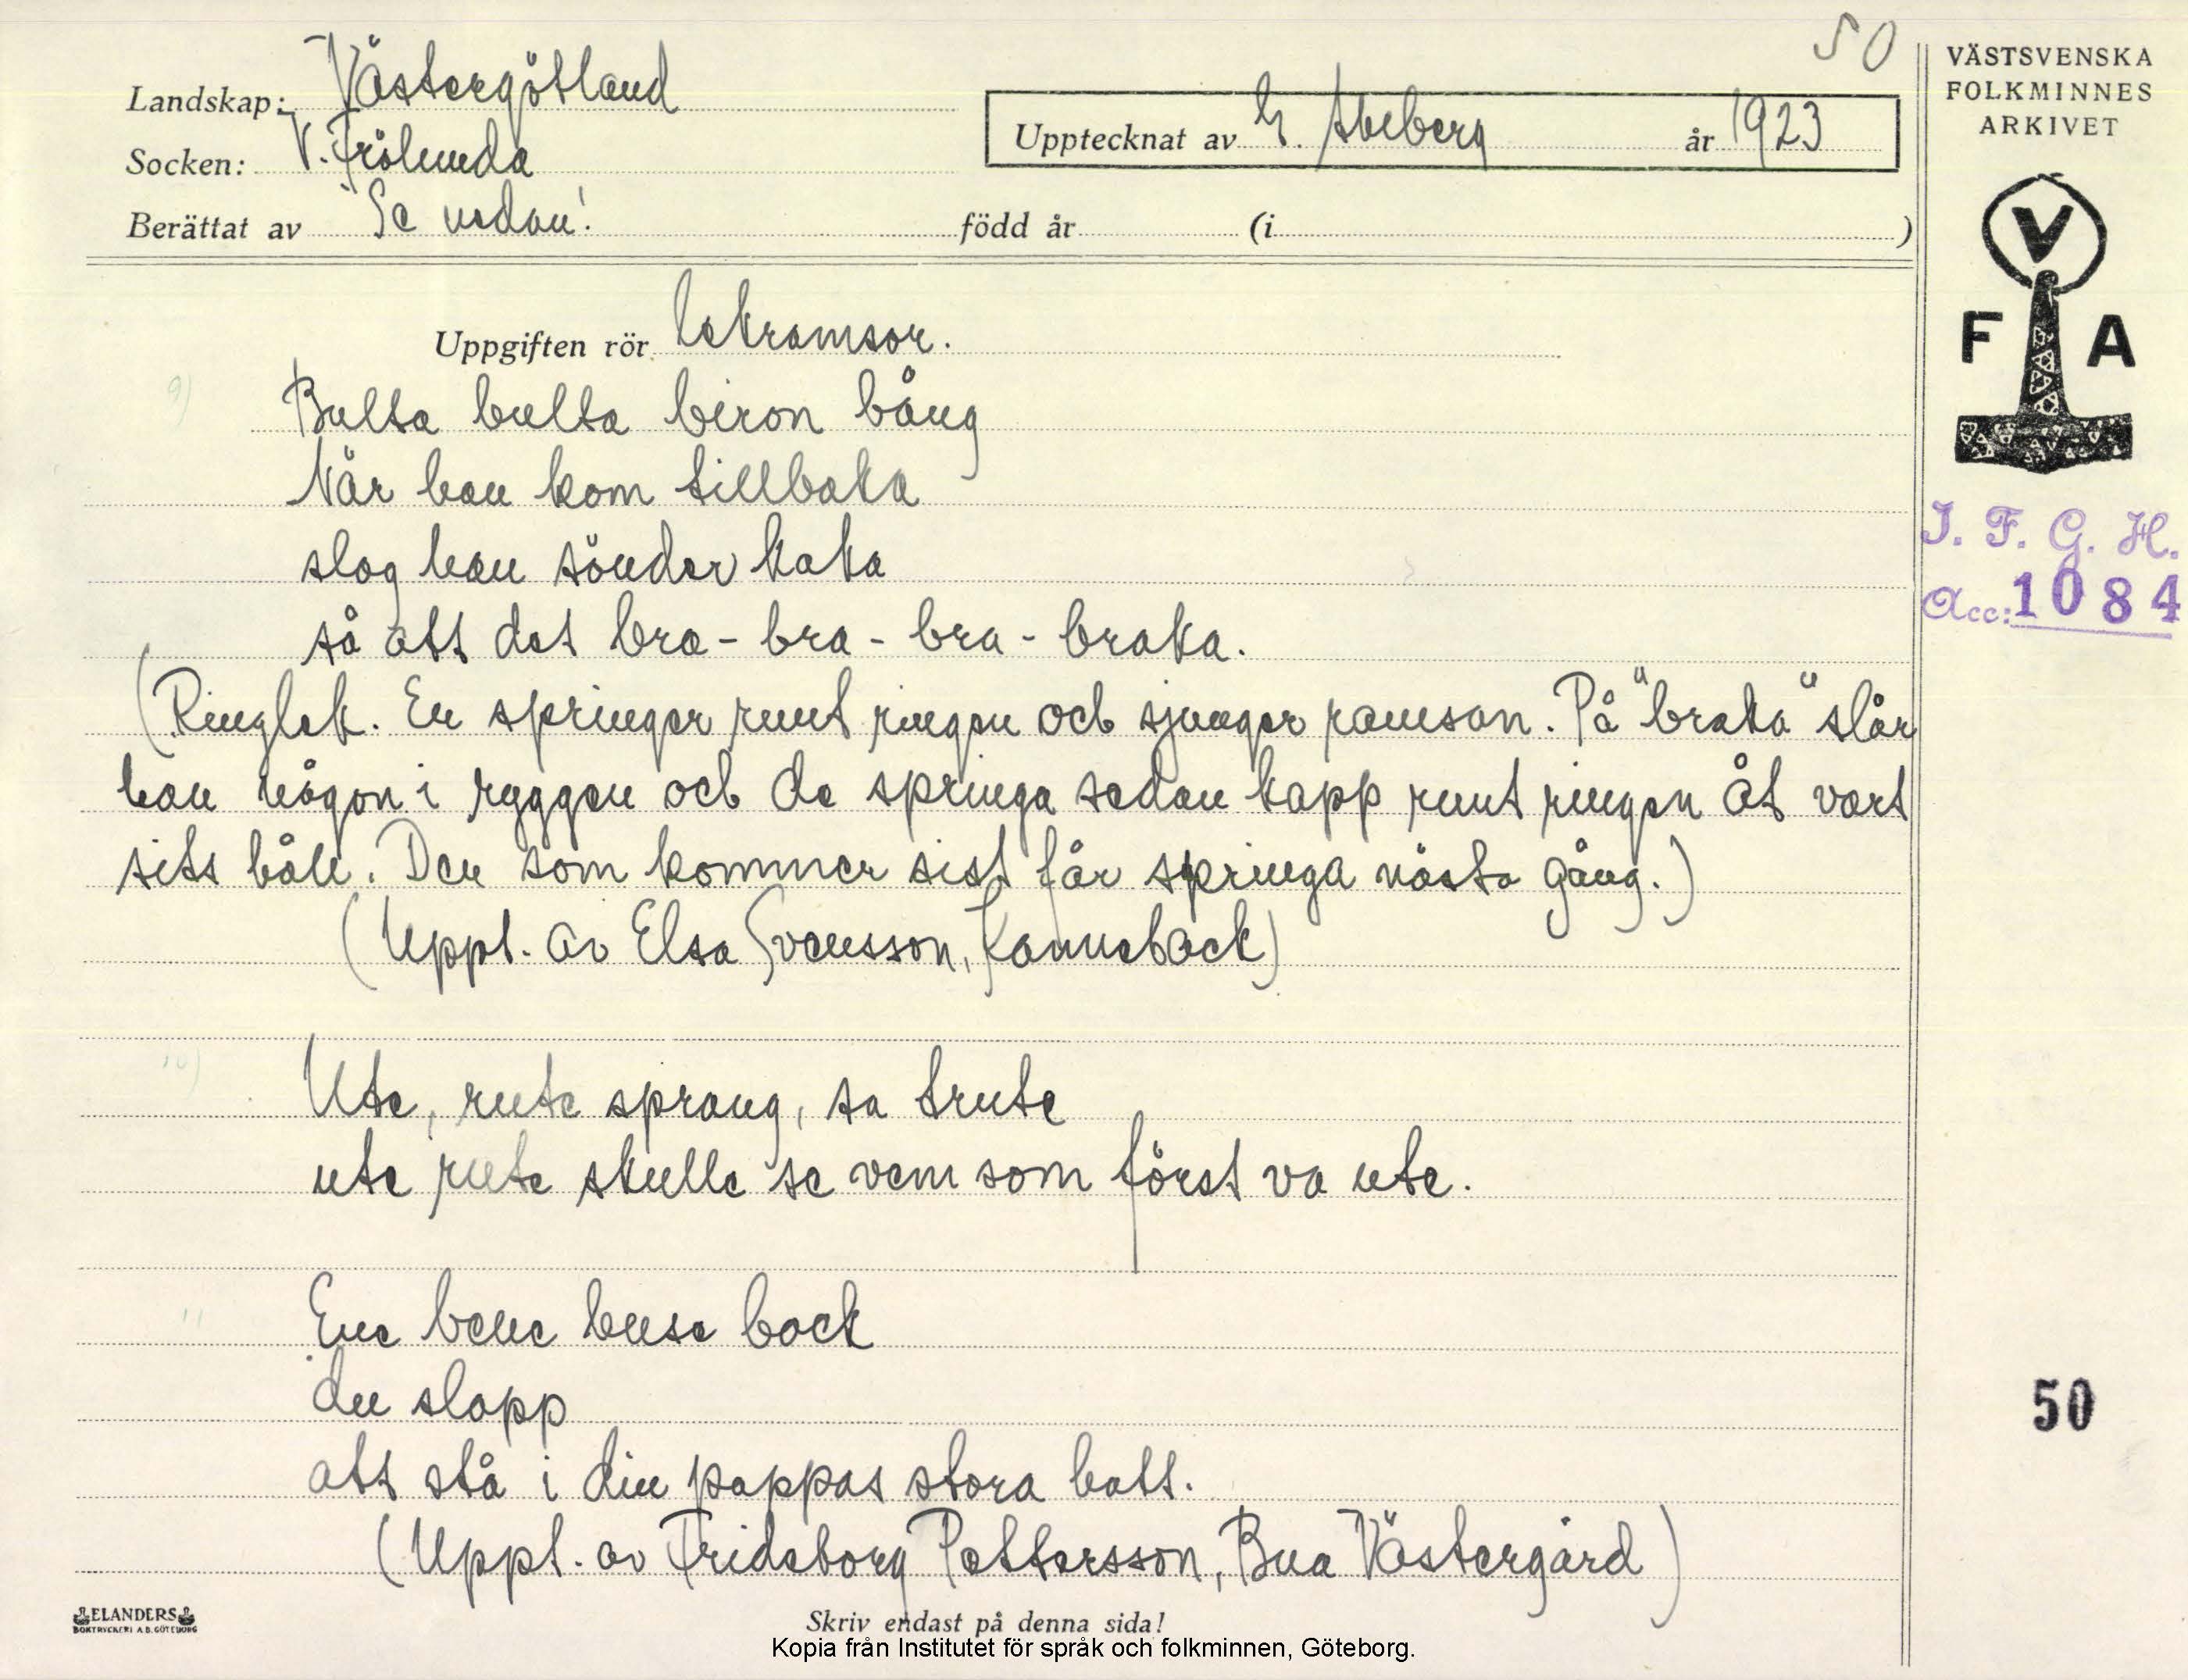 50
VÄSTSVENSKA
FOLKMINNES
ARKIVET
Landskap: Västergötland
Upptecknat av E. Abeberg år 1923
Socken: V. Frölunda
Berättat av Se nedan! född år (i )
V
F A
Uppgiften rör Lekramsor.
9) Bulta bulta biron bång
När han kom tillbaka
slog han sönder kaka
I. F. G. H.
Acc: 1084
så att det bra - bra - bra - braka.
(Ringlek. En springer runt ringen och sjunger ramsan. På "braka" slår
han någon i ryggen och de springa sedan kapp runt ringen åt vart
sitt håll. Den som kommer sist får springa nästa gång.)
(Uppt. av Elsa Svensson, Kannebäck)
10) Ute, rute sprang, sa trute
ute rute skulle se vem som först va ute.
11 Ene bene buse bock
du slapp
50
att stå i din pappas stora hatt.
(Uppt. av Frideborg Pettersson, Bua Västergård)
ELANDERS
BOKTRYCKERI A.B. GÖTEBORG
Skriv endast på denna sida!
Kopia från Institutet för språk och folkminnen, Göteborg.